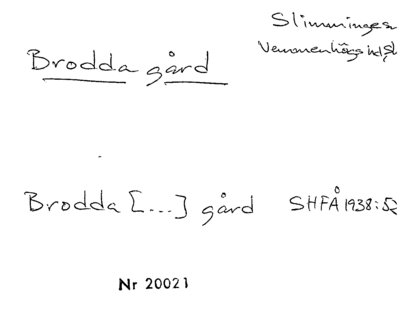 Slimminge sn
Vemmenhögs hd, Sk
Brodda gård
Brodda [...] gård SHFÅ 1938:52
Nr 20021